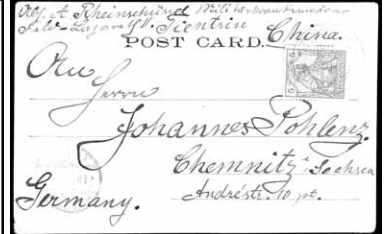 Abs. A. Rheinschüssl Militärkrankenwärter
Feld-Lazareth IV. Tientsin China.
POST CARD.
An
Herrn
Johannes Pohlenz.
Chemnitz i. Sachsen
Germany. Andréstr. 10 pt.